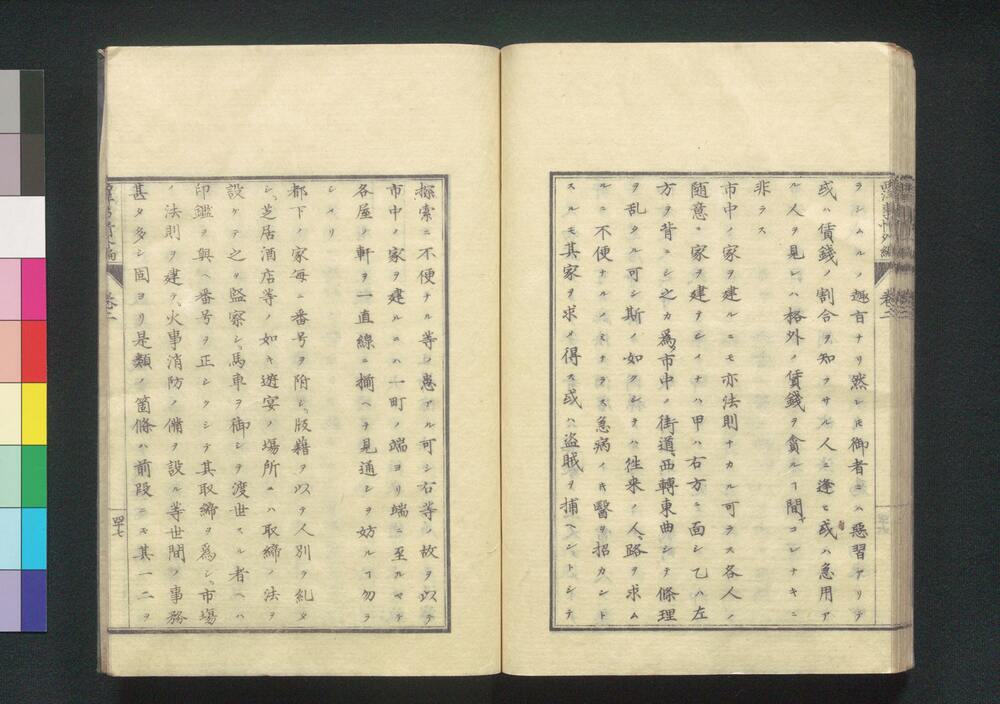 ラシムルノ趣旨ナリ然レ𪜈御者ニハ惡習アリテ
或ハ賃錢ノ割合ヲ知ラサル人ニ逢ヒ或ハ急用ア
ル人ヲ見レハ格外ノ賃錢ヲ貪ルヿ間コレナキニ
非ラス
市中ノ家ヲ建ルニモ亦法則ナカル可ラス各人ノ
隨意ニ家ヲ建ヲシイナハ甲ハ右方ニ面シ乙ハ左
方ヲ背ニシ之カ爲市中ノ街道西轉東曲シテ條理
ヲ乱タル可シ斯ノ如クシテハ徃来ノ人路ヲ求ム
ルニ不便ナルノミナラス急病ノ𪜈醫ヲ招カント
スルモ其家ヲ求メ得ス或ハ盗賊ヲ捕ヘントシテ
卷二
探索ニ不便ナル等ノ患アル可シ右等ノ故ヲ以テ
市中ノ家ヲ建ルニハ一町ノ端ヨリ端ニ至ルマテ
各屋ノ軒ヲ一直線ニ揃ヘテ見通シヲ妨ルヿ勿ラ
シメリ
都下ノ家毎ニ番号ヲ附シ版籍ヲ以テ人別ヲ糺タ
シ芝居酒店等ノ如キ遊宴ノ場所ニハ取締ノ法ヲ
設ケテ之ヲ監察シ馬車ヲ御シテ渡世スル者ヘハ
印鑑ヲ與ヘ番号ヲ正シクシテ其取締ヲ爲シ市場
ノ法則ヲ建テ火事消防ノ備ヲ設ル等世間ノ事務
甚タ多シ固ヨリ是類ノ箇條ハ前段ニモ其一二ヲ
卷二
四十七